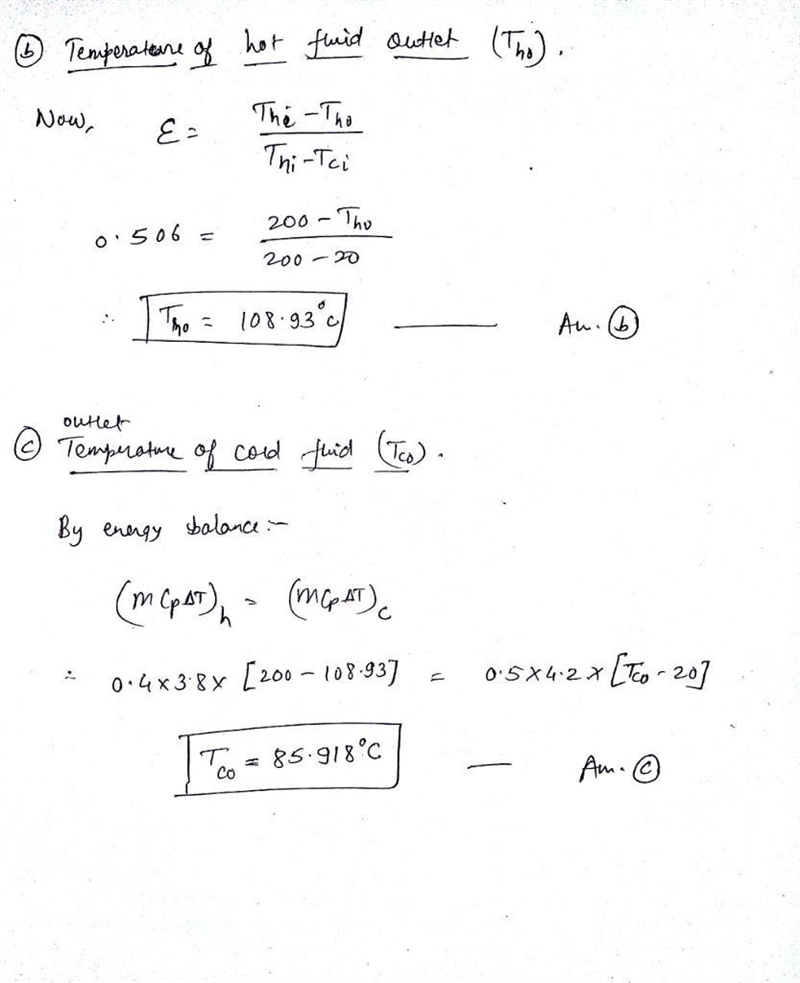 (b) Temperature of hot fluid outlet (Tho).
Now, ε = (Thi - Tho) / (Thi - Tci)
0.506 = (200 - Tho) / (200 - 20)
∴ Tho = 108.93°C — Ans. (b)
outlet
(c) Temperature of cold fluid (Tco).
By energy balance :-
(m Cp ΔT)h = (m Cp ΔT)c
∴ 0.4 x 3.8 x [200 - 108.93] = 0.5 x 4.2 x [Tco - 20]
Tco = 85.918°C — Ans. (c)